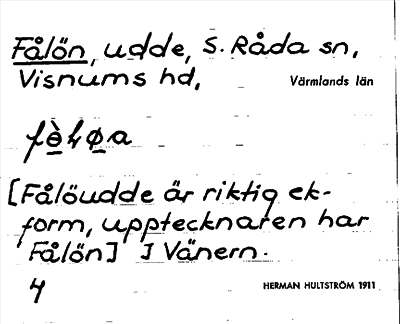 Fålön, udde, S. Råda sn,
Visnums hd, Värmlands län
[Fålöudde är riktig ek-
form, upptecknaren har
Fålön] I Vänern.
4
HERMAN HULTSTRÖM 1911